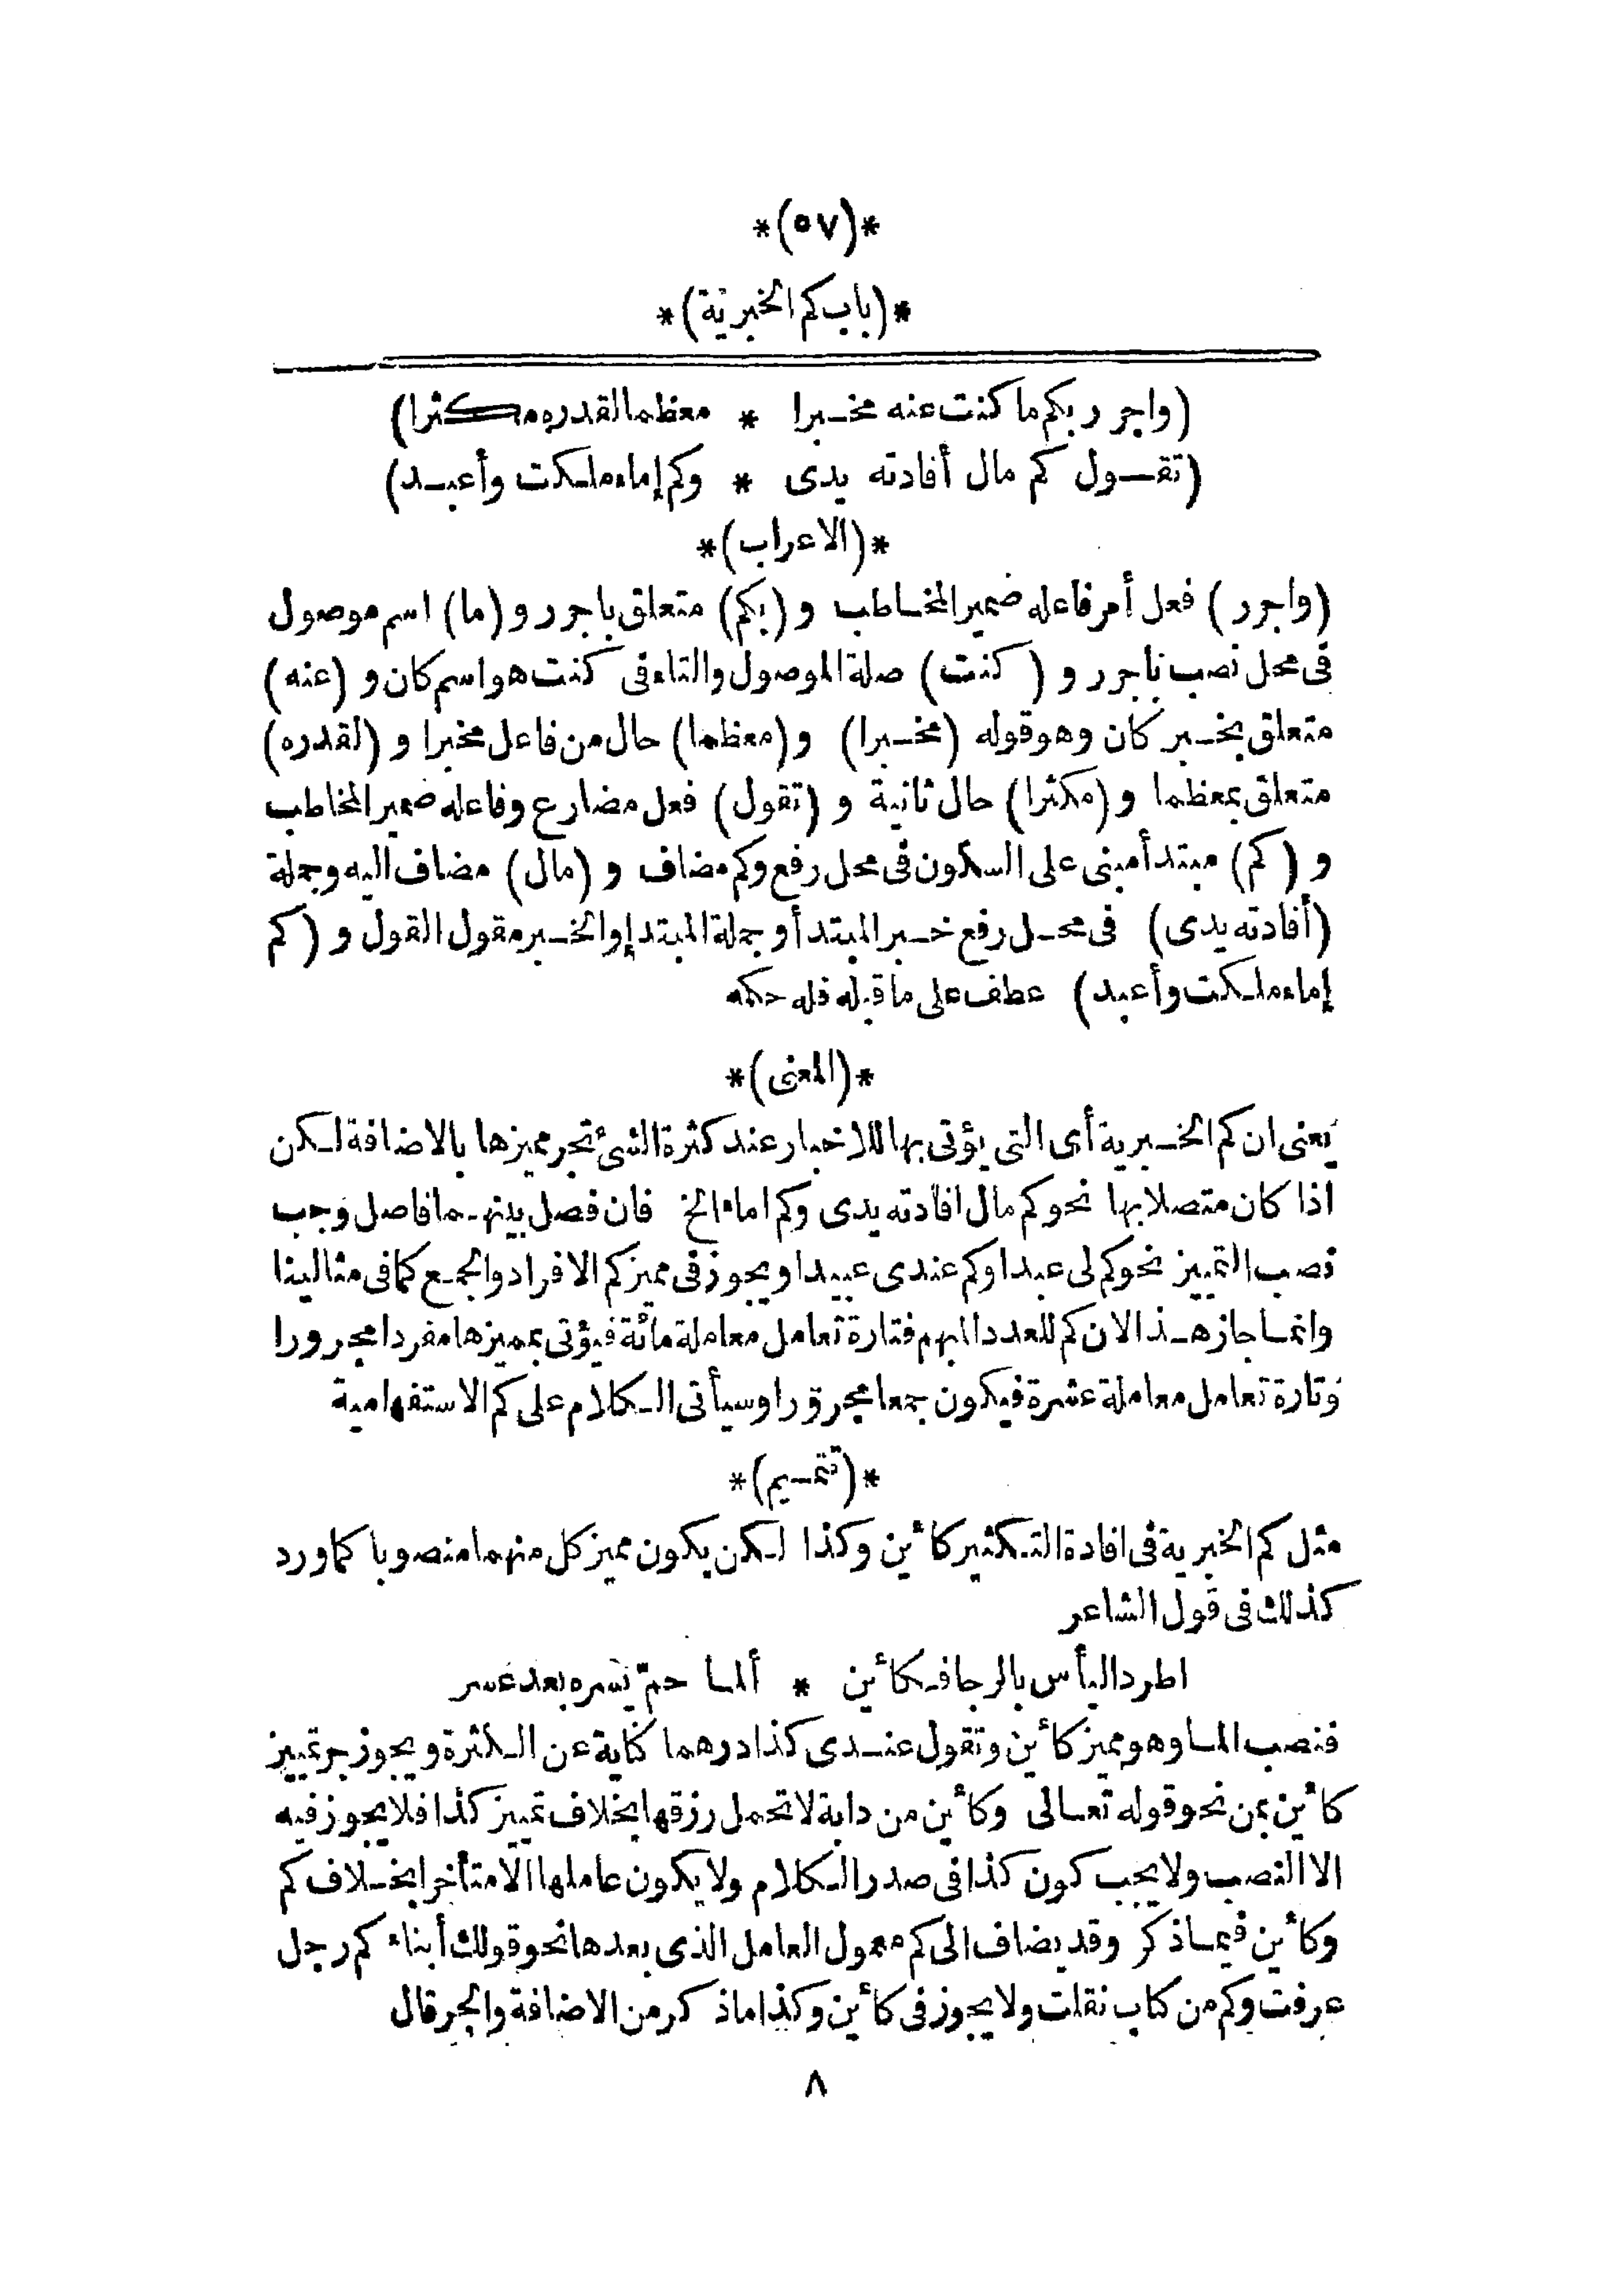 *(٥٧)*
*(باب كم الخبرية)*
(واجرر بكم ما كنت عنه مخبرا * معظما لقدره مكثرا)
(تقول كم مال أفادته يدى * وكم إماء ملكت وأعبد)
*(الاعراب)*
(واجرر) فعل أمر فاعله ضمير المخاطب و(بكم) متعلق باجرر و(ما) اسم موصول
فى محل نصب باجرر و(كنت) صلة الموصول والتاء فى كنت هو اسم كان و(عنه)
متعلق بخبر كان وهو قوله (مخبرا) و(معظما) حال من فاعل مخبرا و(لقدره)
متعلق بمعظما و(مكثرا) حال ثانية و(تقول) فعل مضارع وفاعله ضمير المخاطب
و(كم) مبتدأ مبنى على السكون فى محل رفع وكم مضاف و(مال) مضاف اليه وجملة
(أفادته يدى) فى محل رفع خبر المبتدأ وجملة المبتدإ والخبر مقول القول و(كم
إماء ملكت وأعبد) عطف على ما قبله فله حكمه
*(المعنى)*
يعنى ان كم الخبرية أى التى يؤتى بها للاخبار عند كثرة الشئ تجر مميزها بالاضافة لكن
اذا كان متصلا بها نحو كم مال افادته يدى وكم اماء الخ فان فصل بينهما فاصل وجب
نصب التمييز نحو كم لى عبدا وكم عندى عبيدا ويجوز فى مميز كم الافراد والجمع كما فى مثالينا
وانما جاز هذا لان كم للعدد المبهم فتارة تعامل معاملة مائة فيؤتى بمميزها مفردا مجرورا
وتارة تعامل معاملة عشرة فيكون جمعا مجرورا وسيأتى الكلام على كم الاستفهامية
*(تتميم)*
مثل كم الخبرية فى افادة التكثير كأئين وكذا لكن يكون مميز كل منهما منصوبا كما ورد
كذلك فى قول الشاعر
اطرد اليأس بالرجا فكأئين * ألما حمّ يسره بعد عسر
فنصب الما وهو مميز كأئين وتقول عندى كذا درهما كناية عن الكثرة ويجوز جر تمييز
كأئين بمن نحو قوله تعالى وكأئين من دابة لا تحمل رزقها بخلاف تمييز كذا فلا يجوز فيه
الا النصب ولا يجب كون كذا فى صدر الكلام ولا يكون عاملها الا متأخرا بخلاف كم
وكأئين فيما ذكر وقد يضاف الى كم معمول العامل الذى بعدها نحو قولك أبناء كم رجل
عرفت وكم من كتاب نقلت ولا يجوز فى كأئين وكذا ما ذكر من الاضافة والجر قال
٨